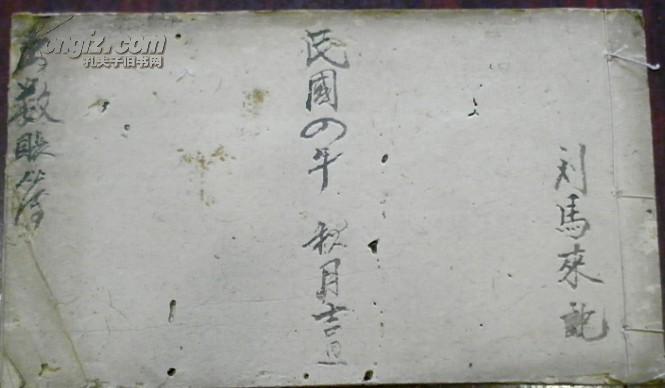 刘馬來記
民國の年 秋月吉立
数賬簿
kongfz.com
孔夫子旧书网